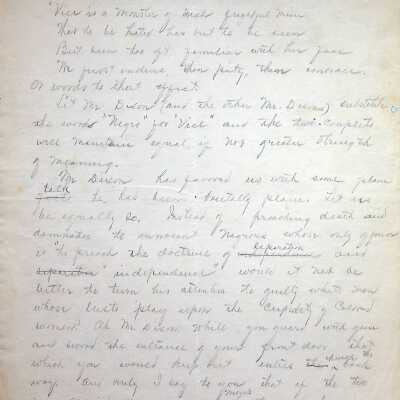 "Vice is a Monster of such frightful mien
That to be hated has but to be seen
But seen too oft familiar with her face
We first endure, then pity, then embrace.
Or words to that effect.
Let Mr Dixon (and the other Mr. Dixons) substitute
the word "Negro" for "Vice" and the two couplets
will maintain equal if not greater strength
of meaning.
Mr Dixon has favored us with some plain
talk he has been brutally plain. Let us
be equally so. Instead of preaching death and
damnation to innocent Negroes whose only
is "to preach the doctrine of separation and
independence" would it not be
better to turn his attention to guilty white men
whose lusts play upon the Cupidity of Colored
women. Ah Mr Dixon while you guard with gun
and sword the entrance of your front door that
which you would keep out enters through the back
way. And only I say to you that if the two